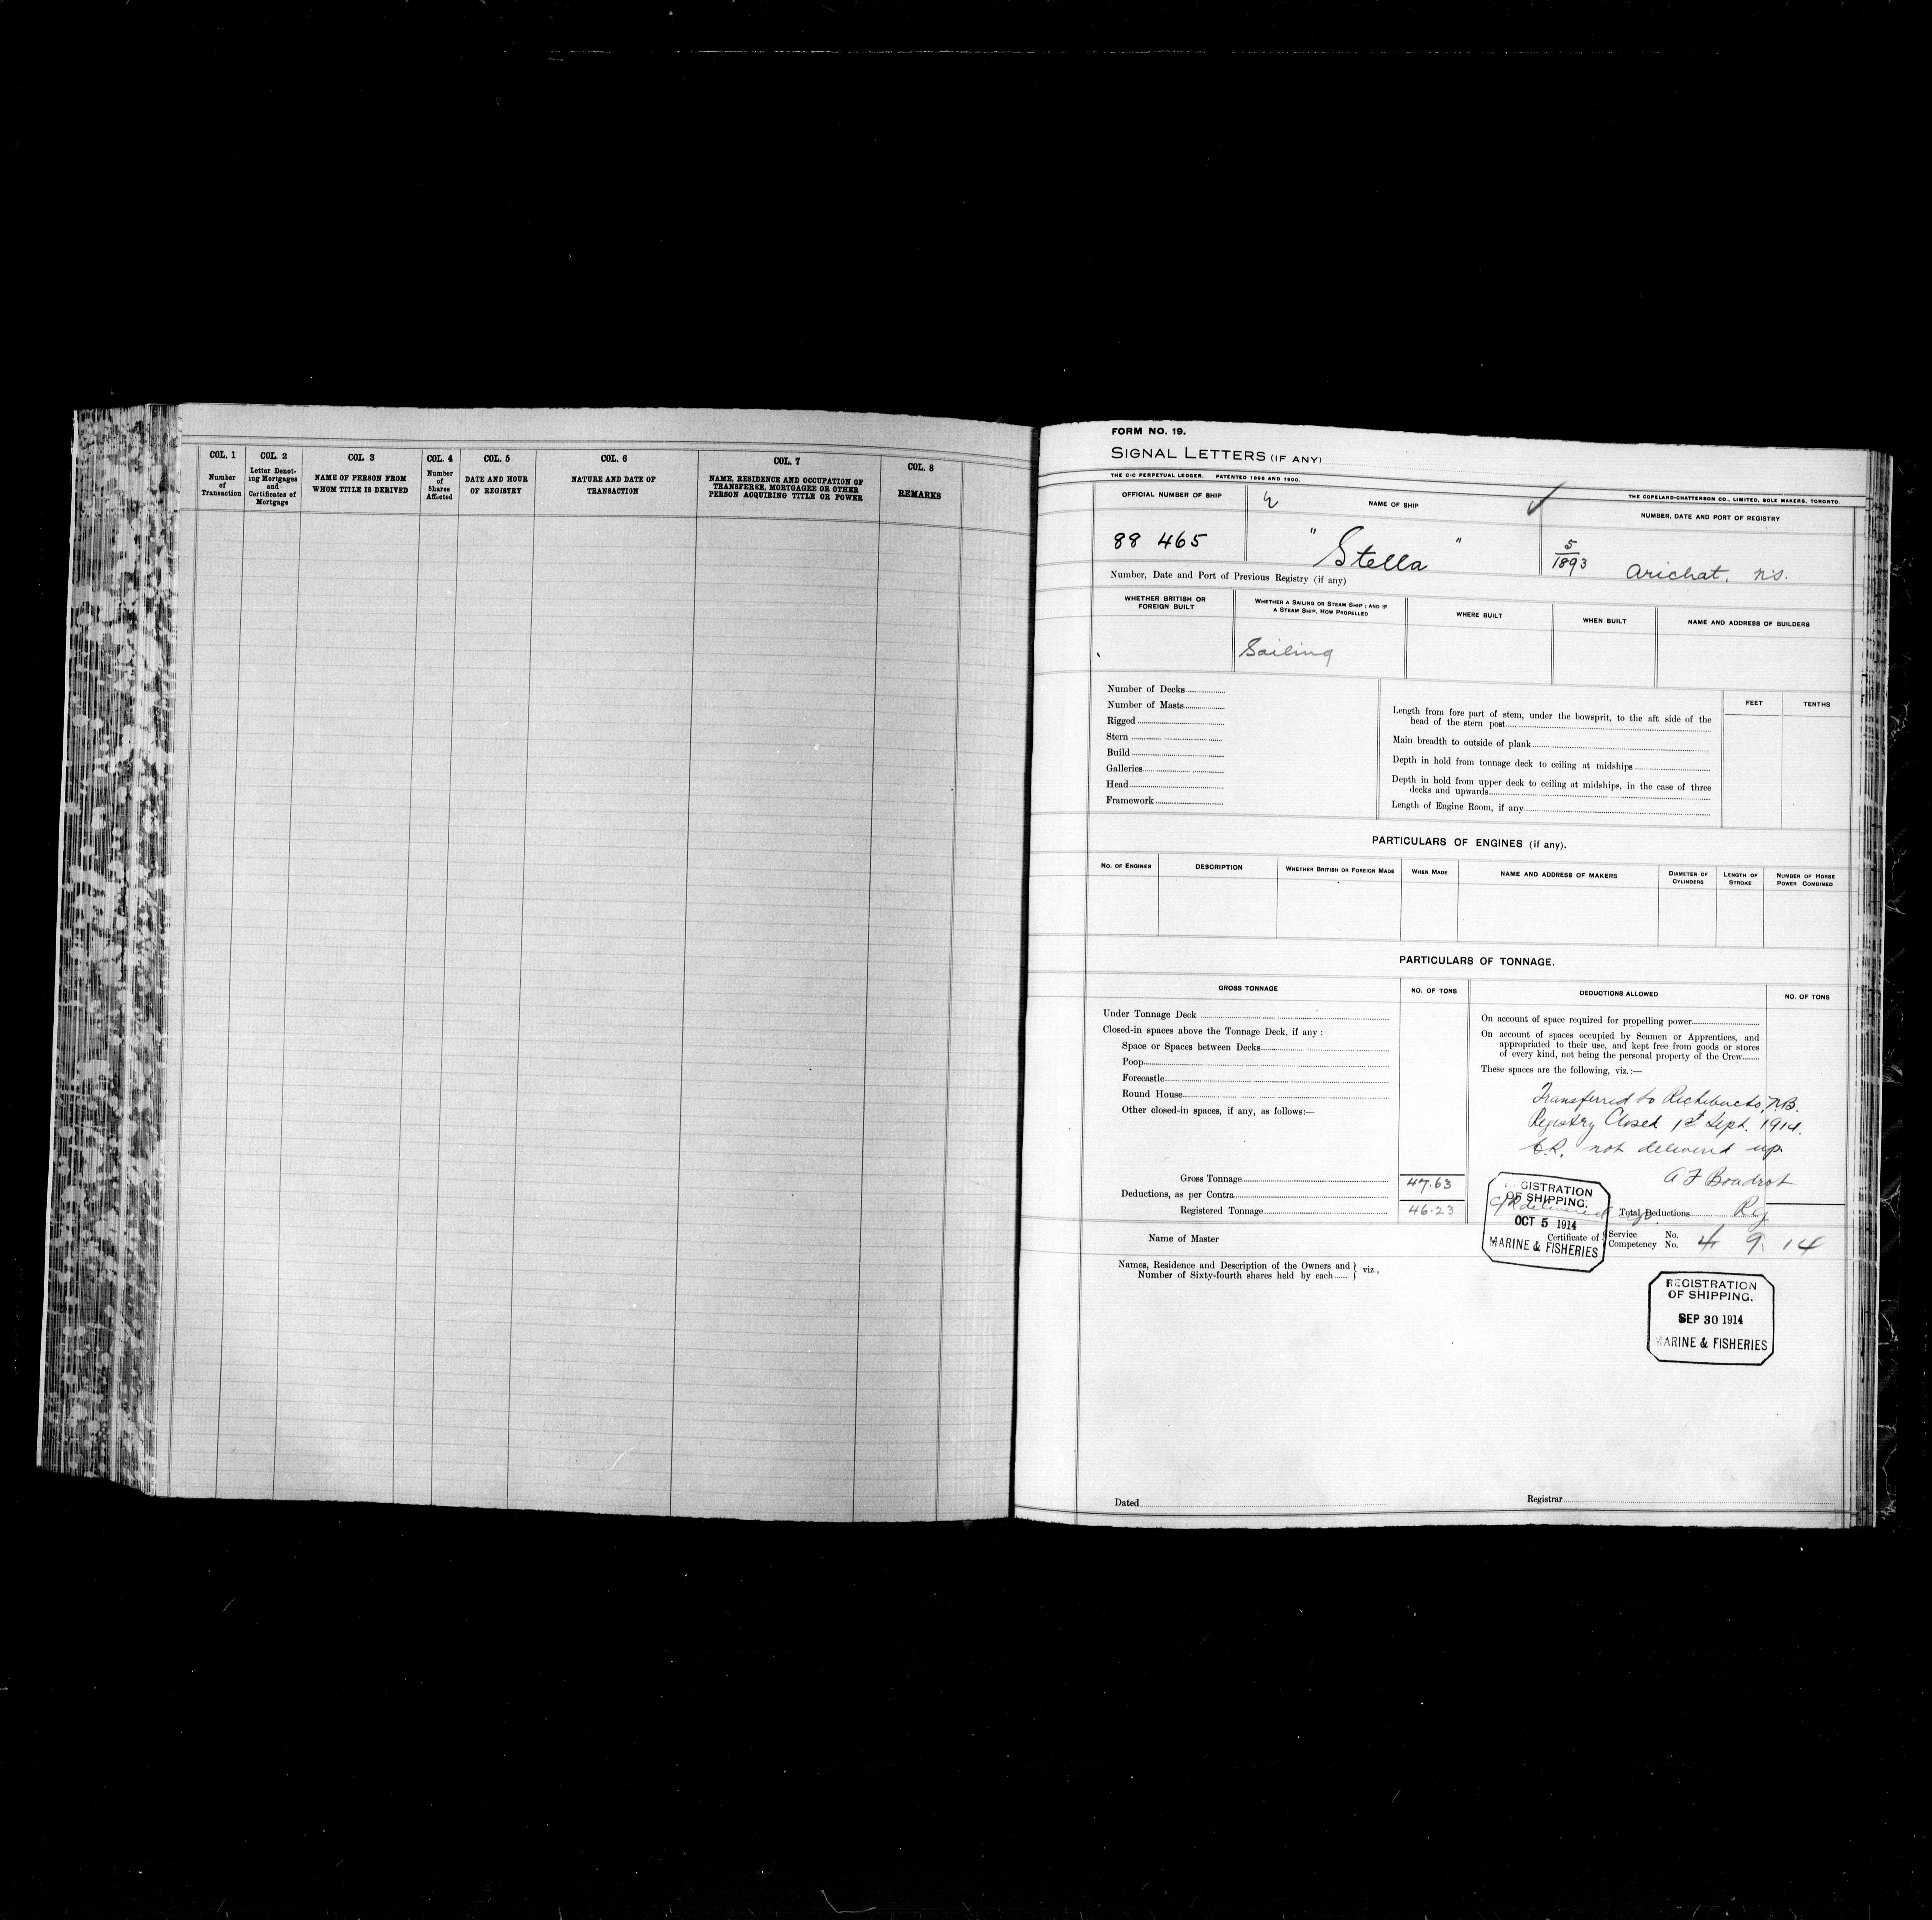 COL. 1
Number
of
Transaction
COL. 2
Letter Denot-
ing Mortgages
and
Certificates of
Mortgage
COL. 3
NAME OF PERSON FROM
WHOM TITLE IS DERIVED
COL. 4
Number
of
Shares
Affected
COL. 5
DATE AND HOUR
OF REGISTRY
COL. 6
NATURE AND DATE OF
TRANSACTION
COL. 7
NAME, RESIDENCE AND OCCUPATION OF
TRANSFEREE, MORTGAGEE OR OTHER
PERSON ACQUIRING TITLE OR POWER
COL. 8
REMARKS
FORM NO. 19.
SIGNAL LETTERS (IF ANY)
THE C-C PERPETUAL LEDGER. PATENTED 1898 AND 1900.
THE COPELAND-CHATTERSON CO., LIMITED, SOLE MAKERS, TORONTO.
OFFICIAL NUMBER OF SHIP
NAME OF SHIP
NUMBER, DATE AND PORT OF REGISTRY
88 465
"Stella"
5/1893 Arichat, N.S.
Number, Date and Port of Previous Registry (if any)
WHETHER BRITISH OR
FOREIGN BUILT
WHETHER A SAILING OR STEAM SHIP; AND IF
A STEAM SHIP, HOW PROPELLED
WHERE BUILT
WHEN BUILT
NAME AND ADDRESS OF BUILDERS
Sailing
Number of Decks
Number of Masts
Rigged
Stern
Build
Galleries
Head
Framework
FEET
TENTHS
Length from fore part of stem, under the bowsprit, to the aft side of the
head of the stern post
Main breadth to outside of plank
Depth in hold from tonnage deck to ceiling at midships
Depth in hold from upper deck to ceiling at midships, in the case of three
decks and upwards
Length of Engine Room, if any
PARTICULARS OF ENGINES (if any).
NO. OF ENGINES
DESCRIPTION
WHETHER BRITISH OR FOREIGN MADE
WHEN MADE
NAME AND ADDRESS OF MAKERS
DIAMETER OF
CYLINDERS
LENGTH OF
STROKE
NUMBER OF HORSE
POWER COMBINED
PARTICULARS OF TONNAGE.
GROSS TONNAGE
NO. OF TONS
DEDUCTIONS ALLOWED
NO. OF TONS
Under Tonnage Deck
Closed-in spaces above the Tonnage Deck, if any :
Space or Spaces between Decks
Poop
Forecastle
Round House
Other closed-in spaces, if any, as follows:—
Gross Tonnage 47.63
Deductions, as per Contra
Registered Tonnage 46.23
On account of space required for propelling power
On account of spaces occupied by Seamen or Apprentices, and
appropriated to their use, and kept free from goods or stores
of every kind, not being the personal property of the Crew
These spaces are the following, viz.:—
Transferred to Richibucto, N.B.
Registry Closed 1st Sept. 1914.
C.R. not delivered up.
A F Boudrot
Rg
C/R delivered up.
Total Deductions
REGISTRATION
OF SHIPPING.
OCT 5 1914
MARINE & FISHERIES
Name of Master
Certificate of
Service No.
Competency No.
4 9 14
Names, Residence and Description of the Owners and } viz.,
Number of Sixty-fourth shares held by each
REGISTRATION
OF SHIPPING.
SEP 30 1914
MARINE & FISHERIES
Dated
Registrar